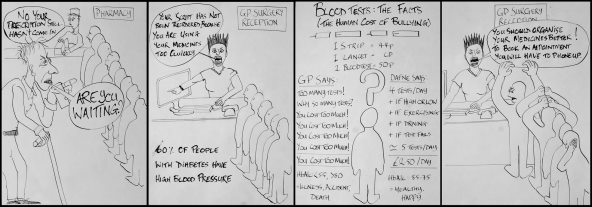 NO YOUR
PRESCRIPTION STILL
HASN'T COME IN
PHARMACY
ARE YOU
WAITING?
YOUR SCRIPT HAS NOT
BEEN REORDERED BECAUSE
YOU ARE USING
YOUR MEDICINES
TOO QUICKLY
GP SURGERY
RECEPTION
60% OF PEOPLE
WITH DIABETES HAVE
HIGH BLOOD PRESSURE
BLOOD TESTS: THE FACTS
(THE HUMAN COST OF BULLYING)
1 STRIP = 44P
1 LANCET =
1 BLOOD TEST = 50P
GP SAYS
TOO MANY TESTS!
WHY SO MANY TESTS?
YOU COST TOO MUCH!
YOU COST TOO MUCH!
YOU COST TOO MUCH!
YOU COST TOO MUCH
YOU COST TOO MUCH
HBA1C
=ILLNESS, ACCIDENT,
DEATH
?
DAFNE SAYS
4 TESTS/DAY
+ IF HIGH OR LOW
+ IF EXERCISING
+ IF DRIVING
+ IF TEST FAILS
≈ 5 TESTS/DAY
£2.50/DAY
HBA1C
=HEALTHY,
HAPPY
GP SURGERY
RECEPTION
YOU SHOULD ORGANISE
YOUR MEDICINES BETTER!
TO BOOK AN APPOINTMENT
YOU WILL HAVE TO PHONE UP